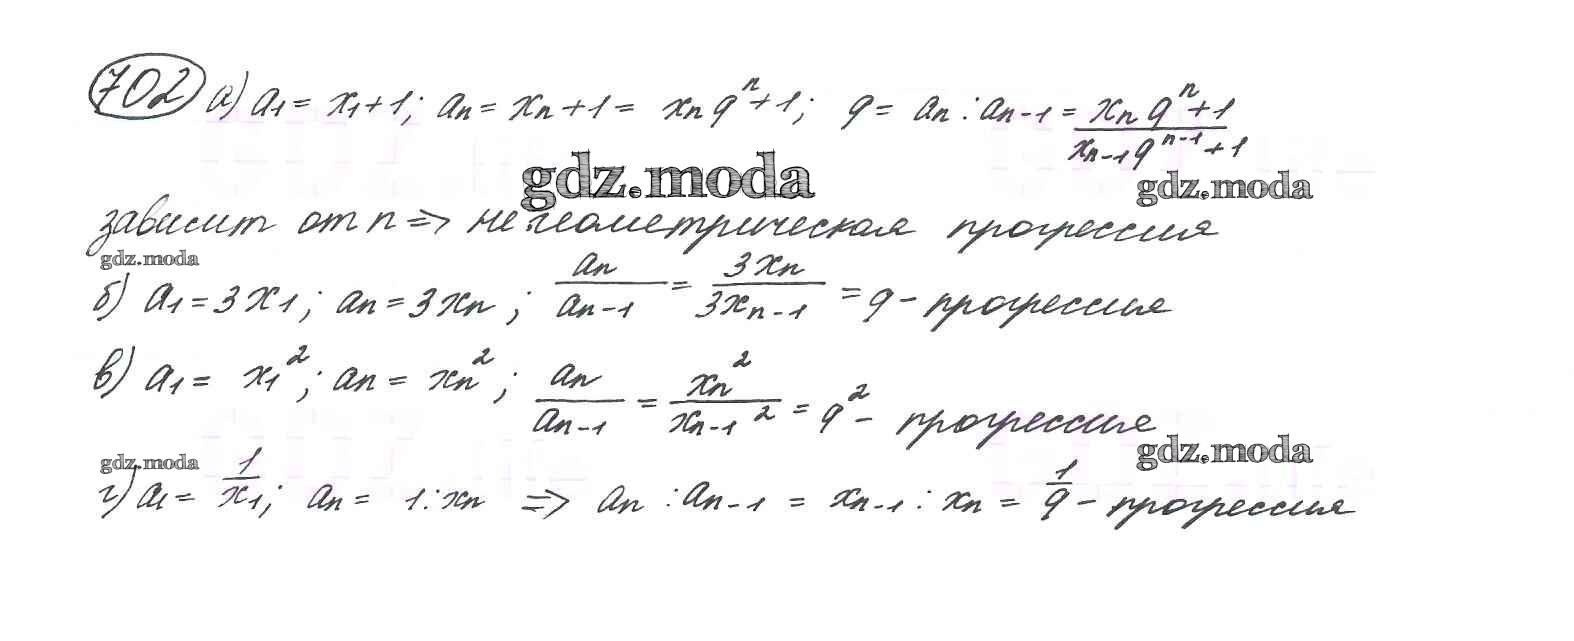 702 а) a₁ = x₁+1; aₙ = xₙ+1 = xₙ qⁿ+1; q = aₙ : aₙ₋₁ = (xₙ qⁿ+1)/(xₙ₋₁ qⁿ⁻¹+1)
gdz.moda
gdz.moda
зависит от n ⇒ не геометрическая прогрессия
gdz.moda
б) a₁ = 3x₁; aₙ = 3xₙ; aₙ/aₙ₋₁ = 3xₙ/3xₙ₋₁ = q - прогрессия
в) a₁ = x₁²; aₙ = xₙ²; aₙ/aₙ₋₁ = xₙ²/xₙ₋₁² = q² - прогрессия
gdz.moda
gdz.moda
г) a₁ = 1/x₁; aₙ = 1:xₙ ⇒ aₙ : aₙ₋₁ = xₙ₋₁ : xₙ = 1/q - прогрессия